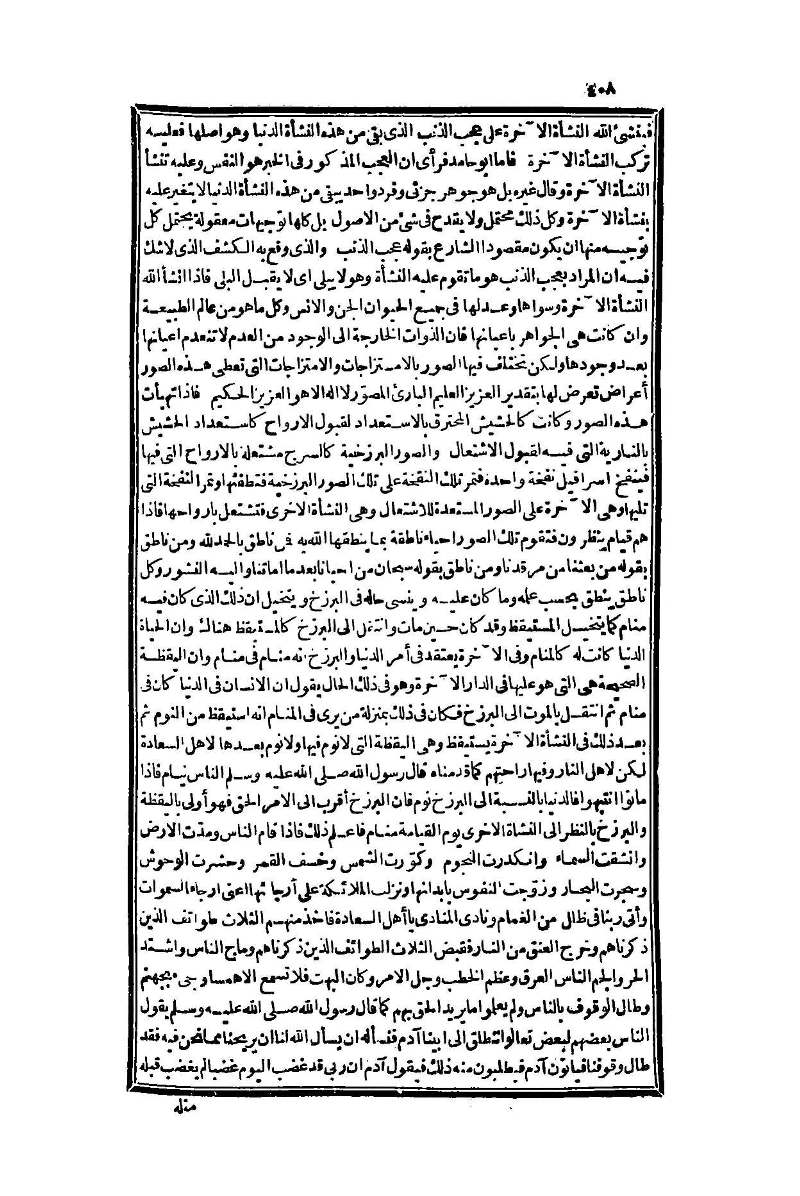 ٤٠٨
فينشئ الله النشأة الآخرة على عجب الذنب الذى يبقى من هذه النشأة الدنيا وهو اصلها فعليه
تركب النشأة الآخرة فاما ابو حامد فرأى ان العجب المذكور فى الخبر هو النفس وعليه تنشأ
النشأة الآخرة وقال غيره بل هو جوهر جزئى وفرد واحد يبقى من هذه النشأة الدنيا لا يتغير عليه
ينشأ النشأة الآخرة وكل ذلك محتمل ولا يقدح فى شئ من الاصول بل كلها توجيهات معقولة يحتمل كل
توجيه منها ان يكون مقصود الشارع بقوله عجب الذنب والذى وقع به الكشف الذى لا شك
فيه ان المراد بعجب الذنب هو ما تقوم عليه النشأة وهو لا يبلى اى لا يقبل البلى فاذا انشأ الله
النشأة الآخرة وسواها وعدلها فى جميع الحيوان الجن والانس وكل ما هو من عالم الطبيعة
وان كانت هى الجواهر باعيانها فان الذوات الخارجة الى الوجود من العدم لا تنعدم اعيانها
بعد وجودها ولكن تختلف فيها الصور بالامتزاجات والامتزاجات التى تعطى هذه الصور
أعراض تعرض لها بتقدير العزيز العليم البارئ المصور لا اله الا هو العزيز الحكيم فاذا تهيأت
هذه الصور وكانت كالحشيش المحترق بالاستعداد لقبول الارواح كاستعداد الحشيش
بالنارية التى فيه لقبول الاشتعال والصور البرزخية كالسرج مشتعلة بالارواح التى فيها
فينفخ اسرافيل نفخة واحدة فتمر تلك النفخة على تلك الصور البرزخية فتطفئها وتمر النفخة التى
تليها وهى الآخرة على الصور المستعدة للاشتعال وهى النشأة الاخرى فتشتعل بارواحها فاذا
هم قيام ينظرون فتقوم تلك الصور احياء ناطقة بما ينطقها الله به فن ناطق بالحمد لله ومن ناطق
بقوله من بعثنا من مرقدنا ومن ناطق بقوله سبحان من احيانا بعد ما اماتنا واليه النشور وكل
ناطق ينطق بحسب علمه وما كان عليه وينسى حاله فى البرزخ ويتخيل ان ذلك الذى كان فيه
منام كما يتخيل المستيقظ وقد كان حين مات وانتقل الى البرزخ كالمستيقظ هناك وان الحياة
الدنيا كانت له كالمنام وفى الآخرة يعتقد فى أمر الدنيا والبرزخ انه منام فى منام وان اليقظة
الصحيحة هى التى هو عليها فى الدار الآخرة وهو فى ذلك الحال يقول ان الانسان فى الدنيا كان فى
منام ثم انتقل بالموت الى البرزخ فكان فى ذلك بمنزلة من يرى فى المنام انه استيقظ من النوم ثم
بعد ذلك فى النشأة الآخرة يستيقظ وهى اليقظة التى لا نوم فيها ولا نوم بعدها لاهل السعادة
لكن لاهل النار وفيها راحتهم كما قدمناه قال رسول الله صلى الله عليه وسلم الناس نيام فاذا
ماتوا انتبهوا فالدنيا بالنسبة الى البرزخ نوم فان البرزخ أقرب الى الامر الحق فهو أولى باليقظة
والبرزخ بالنظر الى النشأة الاخرى يوم القيامة منام فاعلم ذلك فاذا قام الناس ومدت الارض
وانشقت السماء وانكدرت النجوم وكورت الشمس وخسف القمر وحشرت الوحوش
وسجرت البحار وزوجت النفوس بابدانها ونزلت الملائكة على أرجائها اعنى ارجاء السموات
وأتى ربنا فى ظلل من الغمام ونادى المنادى ياأهل السعادة فاخذ منهم الثلاث طوائف الذين
ذكرناهم وخرج العنق من النار فقبض الثلاث الطوائف الذين ذكرناهم وماج الناس واشتد
الحر والجم الناس العرق وعظم الخطب وجل الامر وكان البهت فلا تسمع الا همسا وجئ بجهنم
وطال الوقوف بالناس ولم يعلموا ما يريد الحق بهم كما قال رسول الله صلى الله عليه وسلم يقول
الناس بعضهم لبعض تعالوا ننطلق الى ابينا آدم فنسأله ان يسأل الله لنا ان يريحنا مما نحن فيه فقد
طال وقوفنا فيأتون آدم فيطلبون منه ذلك فيقول آدم ان ربى قد غضب اليوم غضبا لم يغضب قبله
مثله